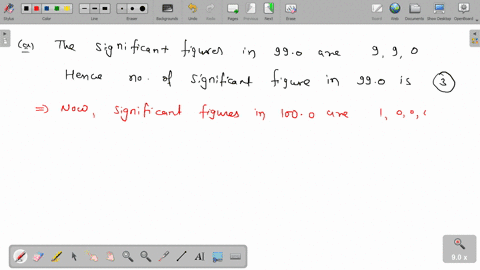 Stylus Color Line Eraser Background Undo Redo Pages Previous Next Erase Board Web Documents Show Desktop OpenBoard
(a) The significant figures in 99.0 are 9, 9, 0
Hence no. of significant figure in 99.0 is 3
⇒ Now, significant figures in 100.0 are 1, 0, 0, 0
9.0 x